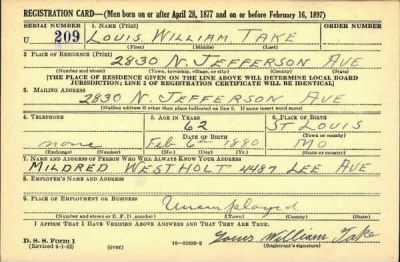 REGISTRATION CARD—(Men born on or after April 28, 1877 and on or before February 16, 1897)
SERIAL NUMBER 1. NAME (Print) ORDER NUMBER
U 209 LOUIS WILLIAM TAKE
(First) (Middle) (Last)
2. PLACE OF RESIDENCE (Print)
2830 N. JEFFERSON AVE
(Number and street) (Town, township, village, or city) (County) (State)
[THE PLACE OF RESIDENCE GIVEN ON THE LINE ABOVE WILL DETERMINE LOCAL BOARD
JURISDICTION; LINE 2 OF REGISTRATION CERTIFICATE WILL BE IDENTICAL]
3. MAILING ADDRESS
2830 N. JEFFERSON AVE
[Mailing address if other than place indicated on line 2. If same insert word same]
4. TELEPHONE 5. AGE IN YEARS 6. PLACE OF BIRTH
62 ST LOUIS
DATE OF BIRTH
none Feb 6 1880 MO
(Exchange) (Number) (Mo.) (Day) (Yr.) (State or country)
7. NAME AND ADDRESS OF PERSON WHO WILL ALWAYS KNOW YOUR ADDRESS
MILDRED WESTHOLT 4487 LEE AVE
8. EMPLOYER'S NAME AND ADDRESS
9. PLACE OF EMPLOYMENT OR BUSINESS
Unemployed
(Number and street or R. F. D. number) (Town) (County) (State)
I AFFIRM THAT I HAVE VERIFIED ABOVE ANSWERS AND THAT THEY ARE TRUE.
D. S. S. Form 1 William Take
(Revised 4-1-42) (over) (Registrant's signature)